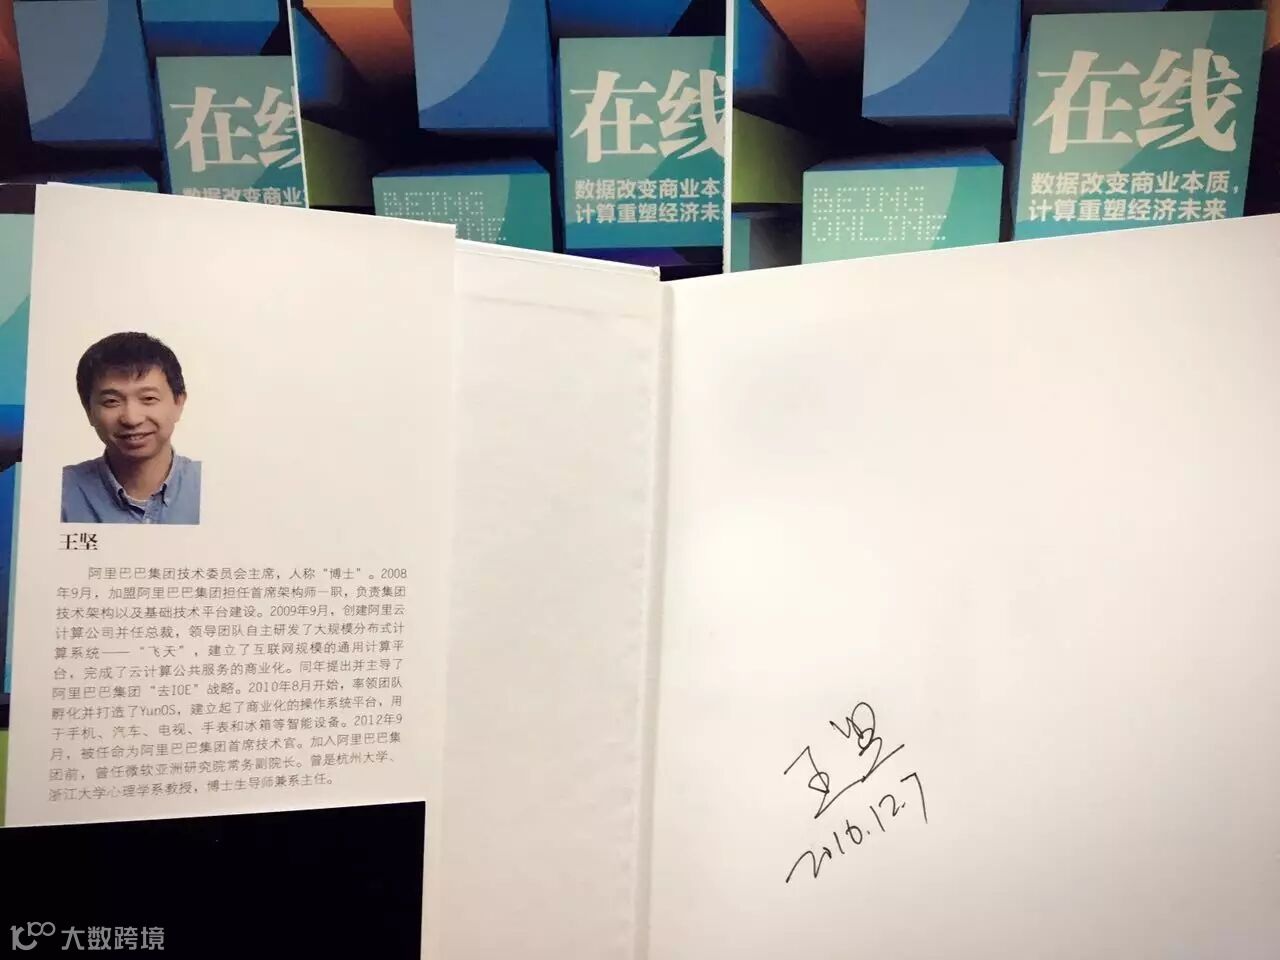 在线
数据改变商业
在线
数据改变商业本质
计算重塑经济未来
BEING
ONLINE
在线
数据改变商业本质,
计算重塑经济未来
BEING
ONLINE
王坚
阿里巴巴集团技术委员会主席，人称“博士”。2008
年9月，加盟阿里巴巴集团担任首席架构师一职，负责集团
技术架构以及基础技术平台建设。2009年9月，创建阿里云
计算公司并任总裁，领导团队自主研发了大规模分布式计
算系统——“飞天”，建立了互联网规模的通用计算平
台，完成了云计算公共服务的商业化。同年提出并主导了
阿里巴巴集团“去IOE”战略。2010年8月开始，率领团队
孵化并打造了YunOS，建立起了商业化的操作系统平台，用
于手机、汽车、电视、手表和冰箱等智能设备。2012年9
月，被任命为阿里巴巴集团首席技术官。加入阿里巴巴集
团前，曾任微软亚洲研究院常务副院长。曾是杭州大学、
浙江大学心理学系教授，博士生导师兼系主任。
王坚
2016.12.7
大数跨境